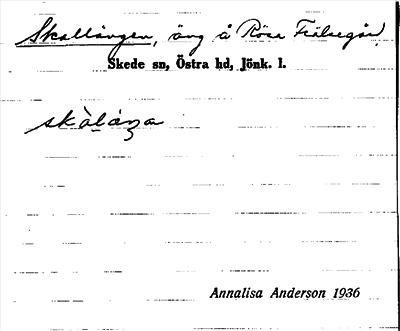 Skallängen, äng å Rösa Frälsegård,
Skede sn, Östra hd, Jönk. l.
skàláŋa
Annalisa Anderson 1936